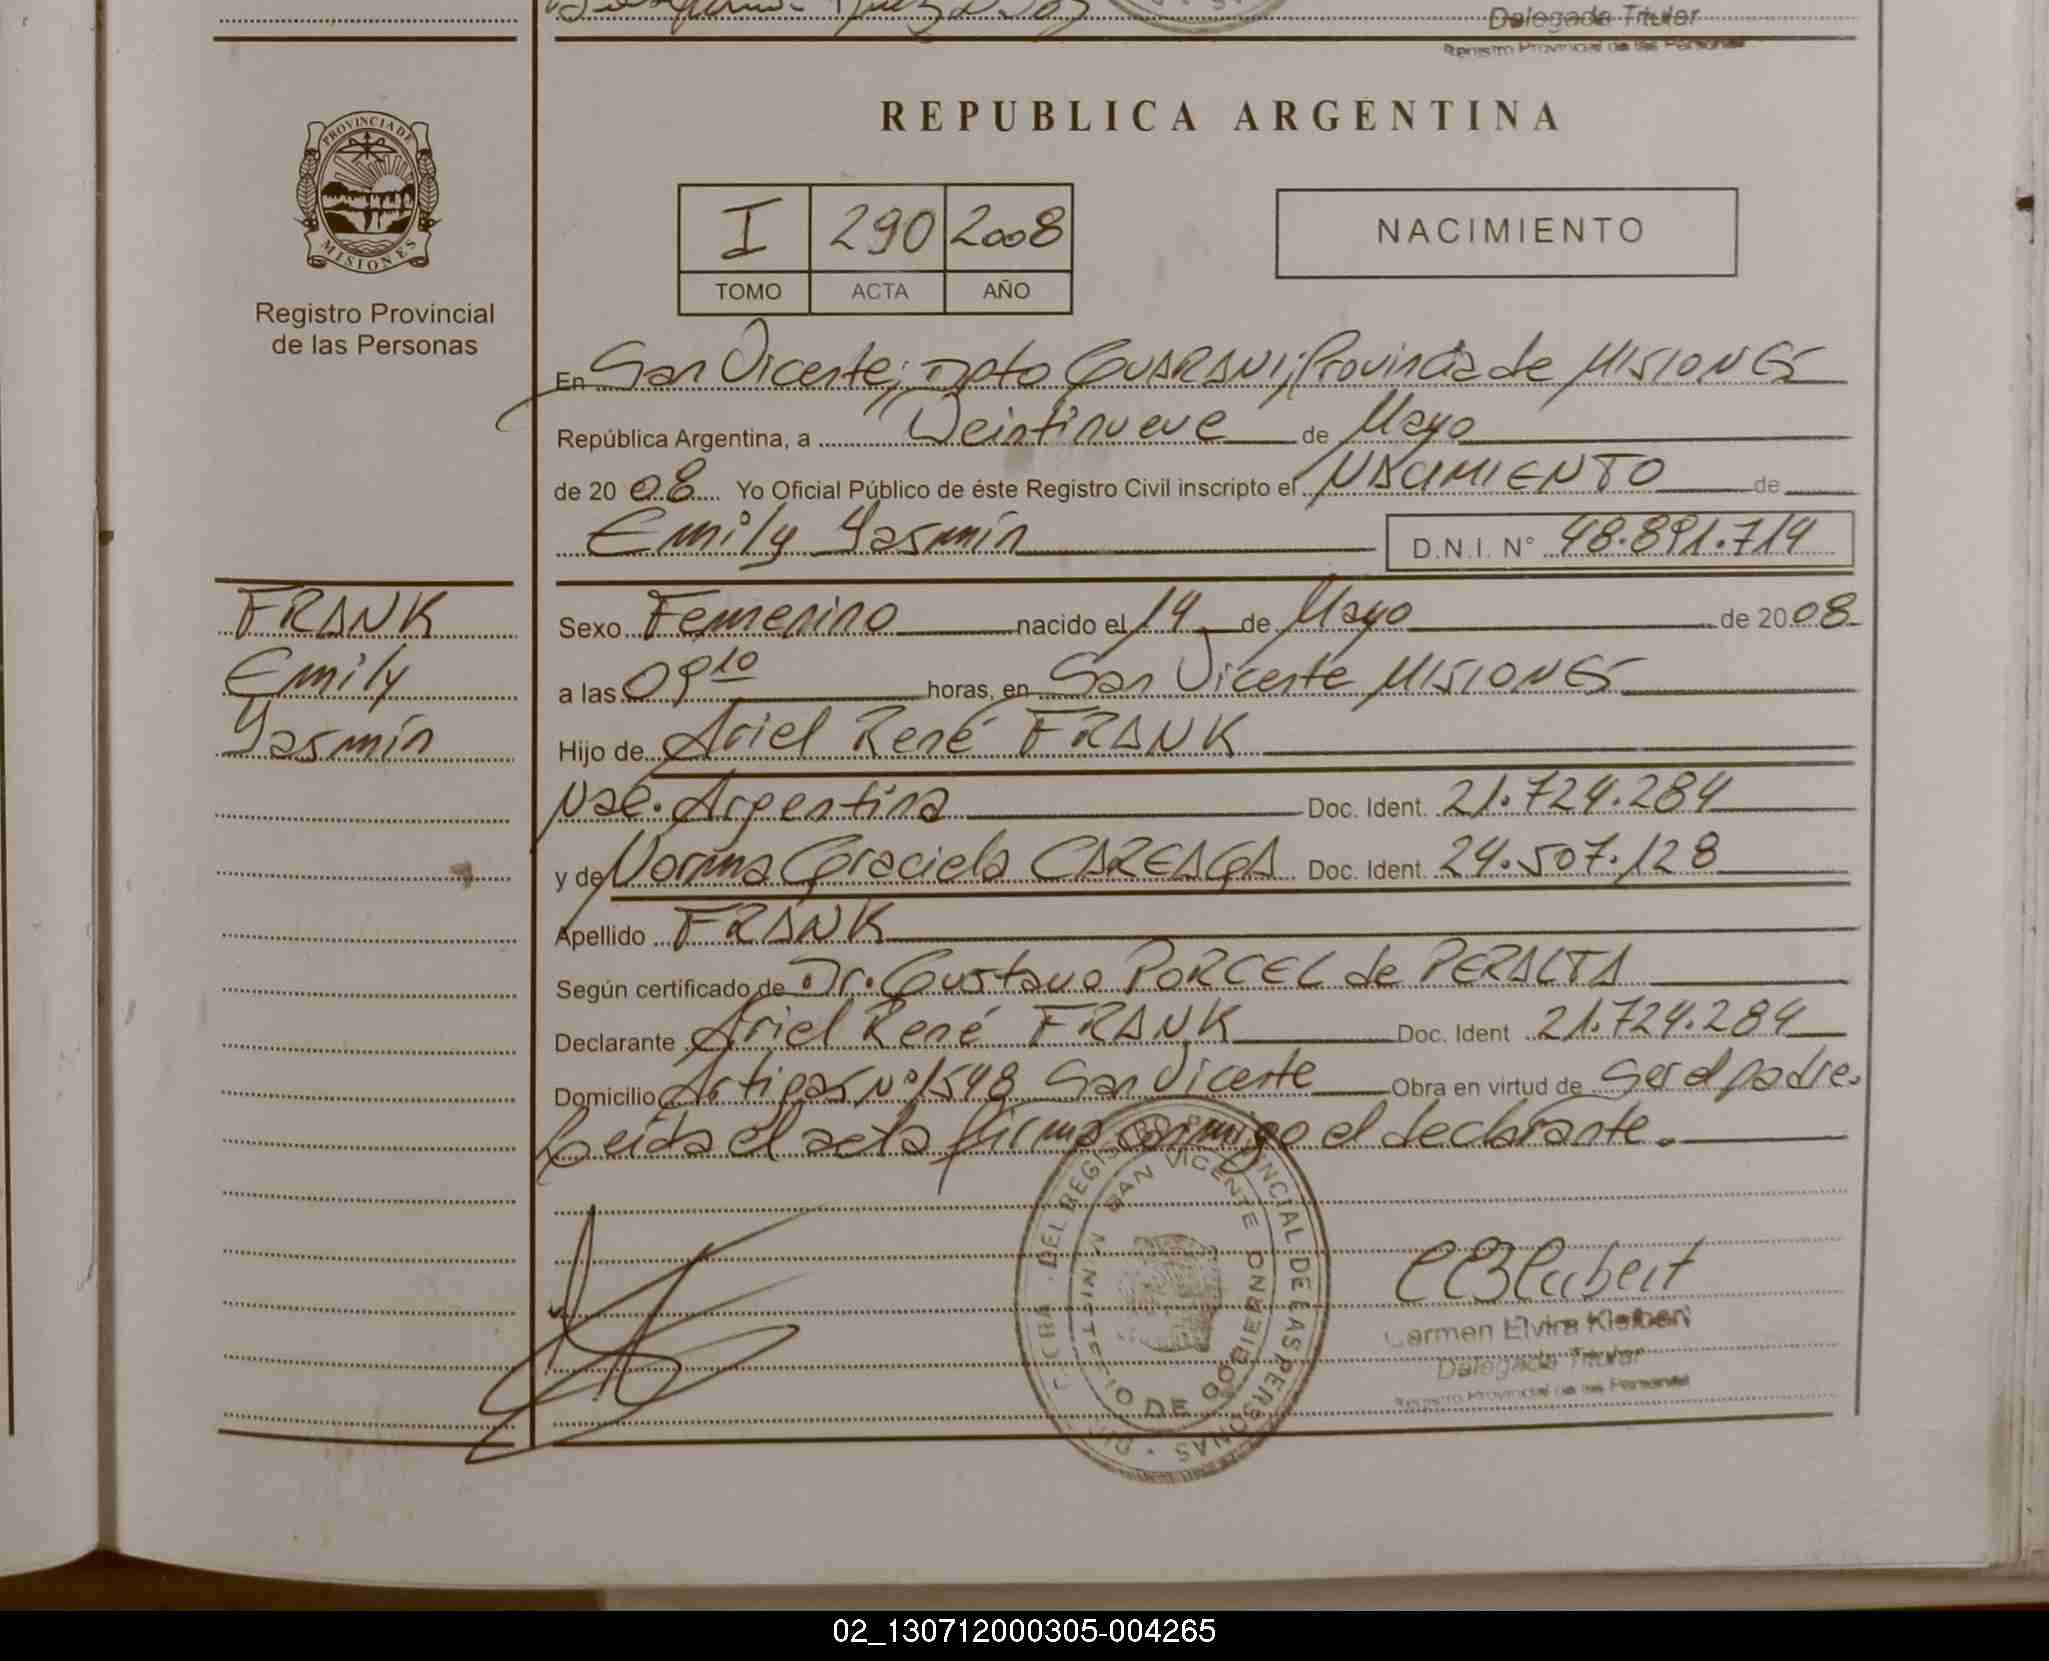 Delegada Titular
Registro Provincial de las Personas
REPUBLICA ARGENTINA
PROVINCIA DE
MISIONES
Registro Provincial
de las Personas
I 290 2008
TOMO ACTA AÑO
NACIMIENTO
En San Vicente; Dpto GUARANI; Provincia de MISIONES
República Argentina, a Veintinueve de Mayo
de 20 08 Yo Oficial Público de éste Registro Civil inscripto el NACIMIENTO de
Emily Yasmín D.N.I. N° 48.891.714
FRANK
Emily
Yasmín
Sexo Femenino nacido el 14 de Mayo de 20 08
a las 09 10 horas, en San Vicente MISIONES
Hijo de Ariel René FRANK
Nac. Argentina Doc. Ident. 21.724.284
y de Norma Graciela CAREAGA Doc. Ident. 24.507.128
Apellido FRANK
Según certificado de Dr. Gustavo PORCEL de PERALTA
Declarante Ariel René FRANK Doc. Ident 21.724.284
Domicilio Artigas Nº 1548 San Vicente Obra en virtud de Ser el padre.
Leída el acta firma conmigo el declarante.
DEL REGISTRO PROVINCIAL DE LAS PERSONAS
SAN VICENTE
MINISTERIO DE GOBIERNO
Carmen Elvira
Delegada Titular
Registro Provincial de las Personas
02_130712000305-004265